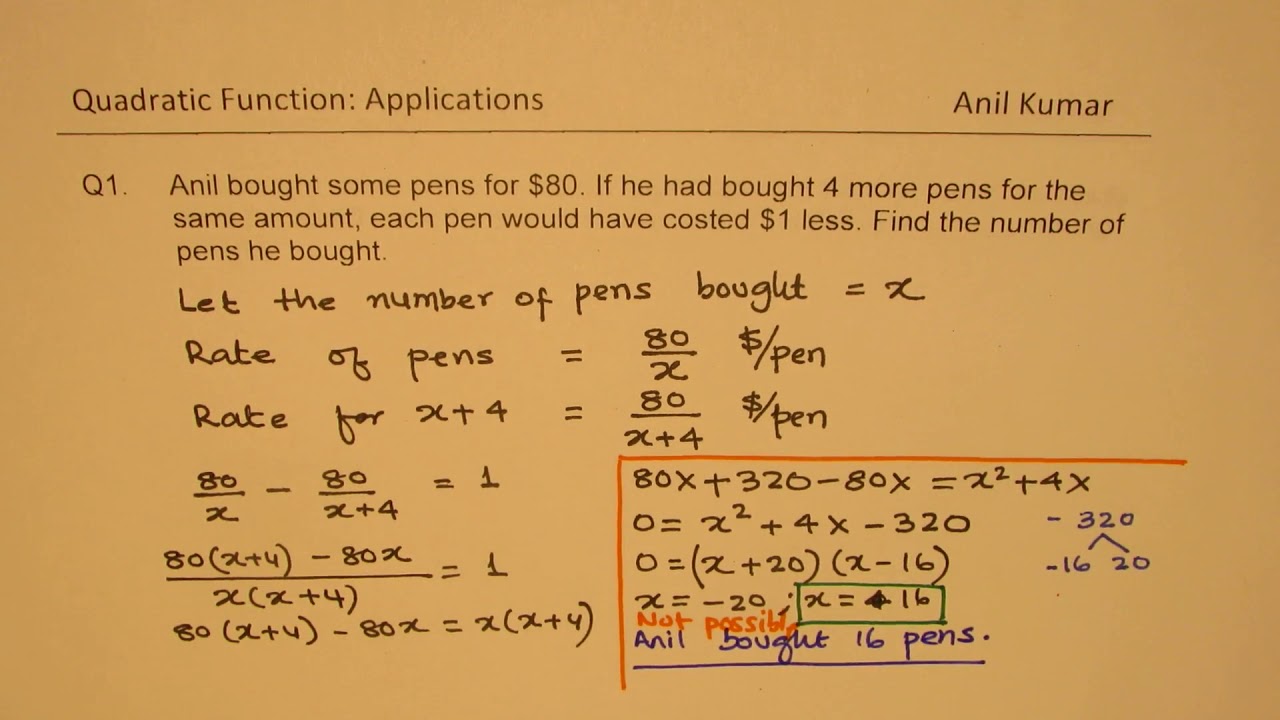 Quadratic Function: Applications Anil Kumar
Q1. Anil bought some pens for $80. If he had bought 4 more pens for the
same amount, each pen would have costed $1 less. Find the number of
pens he bought.
Let the number of pens bought = x
Rate of pens = 80/x $/pen
Rate for x+4 = 80/(x+4) $/pen
80/x - 80/(x+4) = 1
(80(x+4) - 80x)/(x(x+4)) = 1
80(x+4) - 80x = x(x+4)
80x+320-80x = x²+4x
0 = x² + 4x - 320
- 320
0 = (x+20)(x-16)
-16 20
x = -20 ; x = +16
Not possible
Anil bought 16 pens.